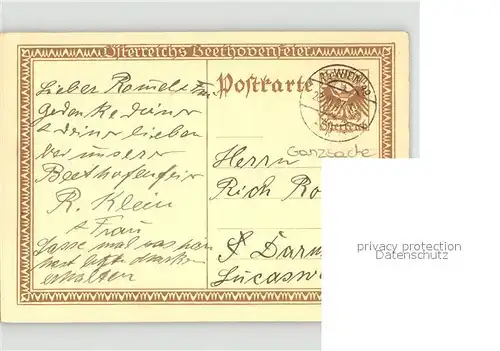 Österreichs Beethovenfeier
Postkarte
WIEN
Ganzsache
Lieber
Gedenke deiner
& deiner lieben
bei unserer
Beethofenfeier
R. Klein
& Frau
Lasse mal was von
erhalten
Herrn
Rich
Darm
Lucasw
privacy protection
Datenschutz